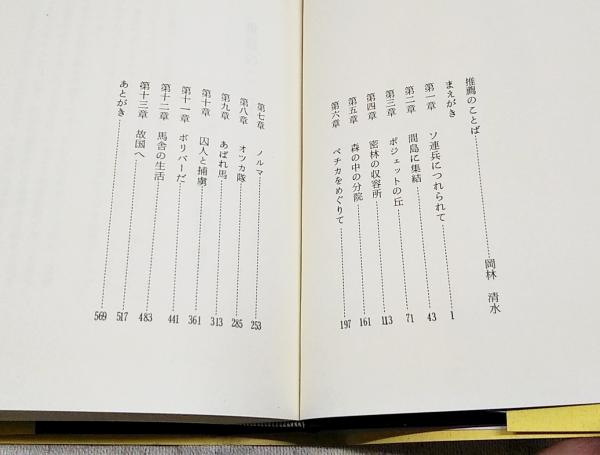 推薦のことば……岡林 清水
まえがき
第一章 ソ連兵につれられて……1
第二章 間島に集結……43
第三章 ポジェットの丘……71
第四章 密林の収容所……113
第五章 森の中の分院……161
第六章 ペチカをめぐりて……197
第七章 ノルマ……253
第八章 オツカ隊……285
第九章 あばれ馬……313
第十章 囚人と捕虜……361
第十一章 ボリバーだ……441
第十二章 馬舎の生活……483
第十三章 故国へ……517
あとがき……569